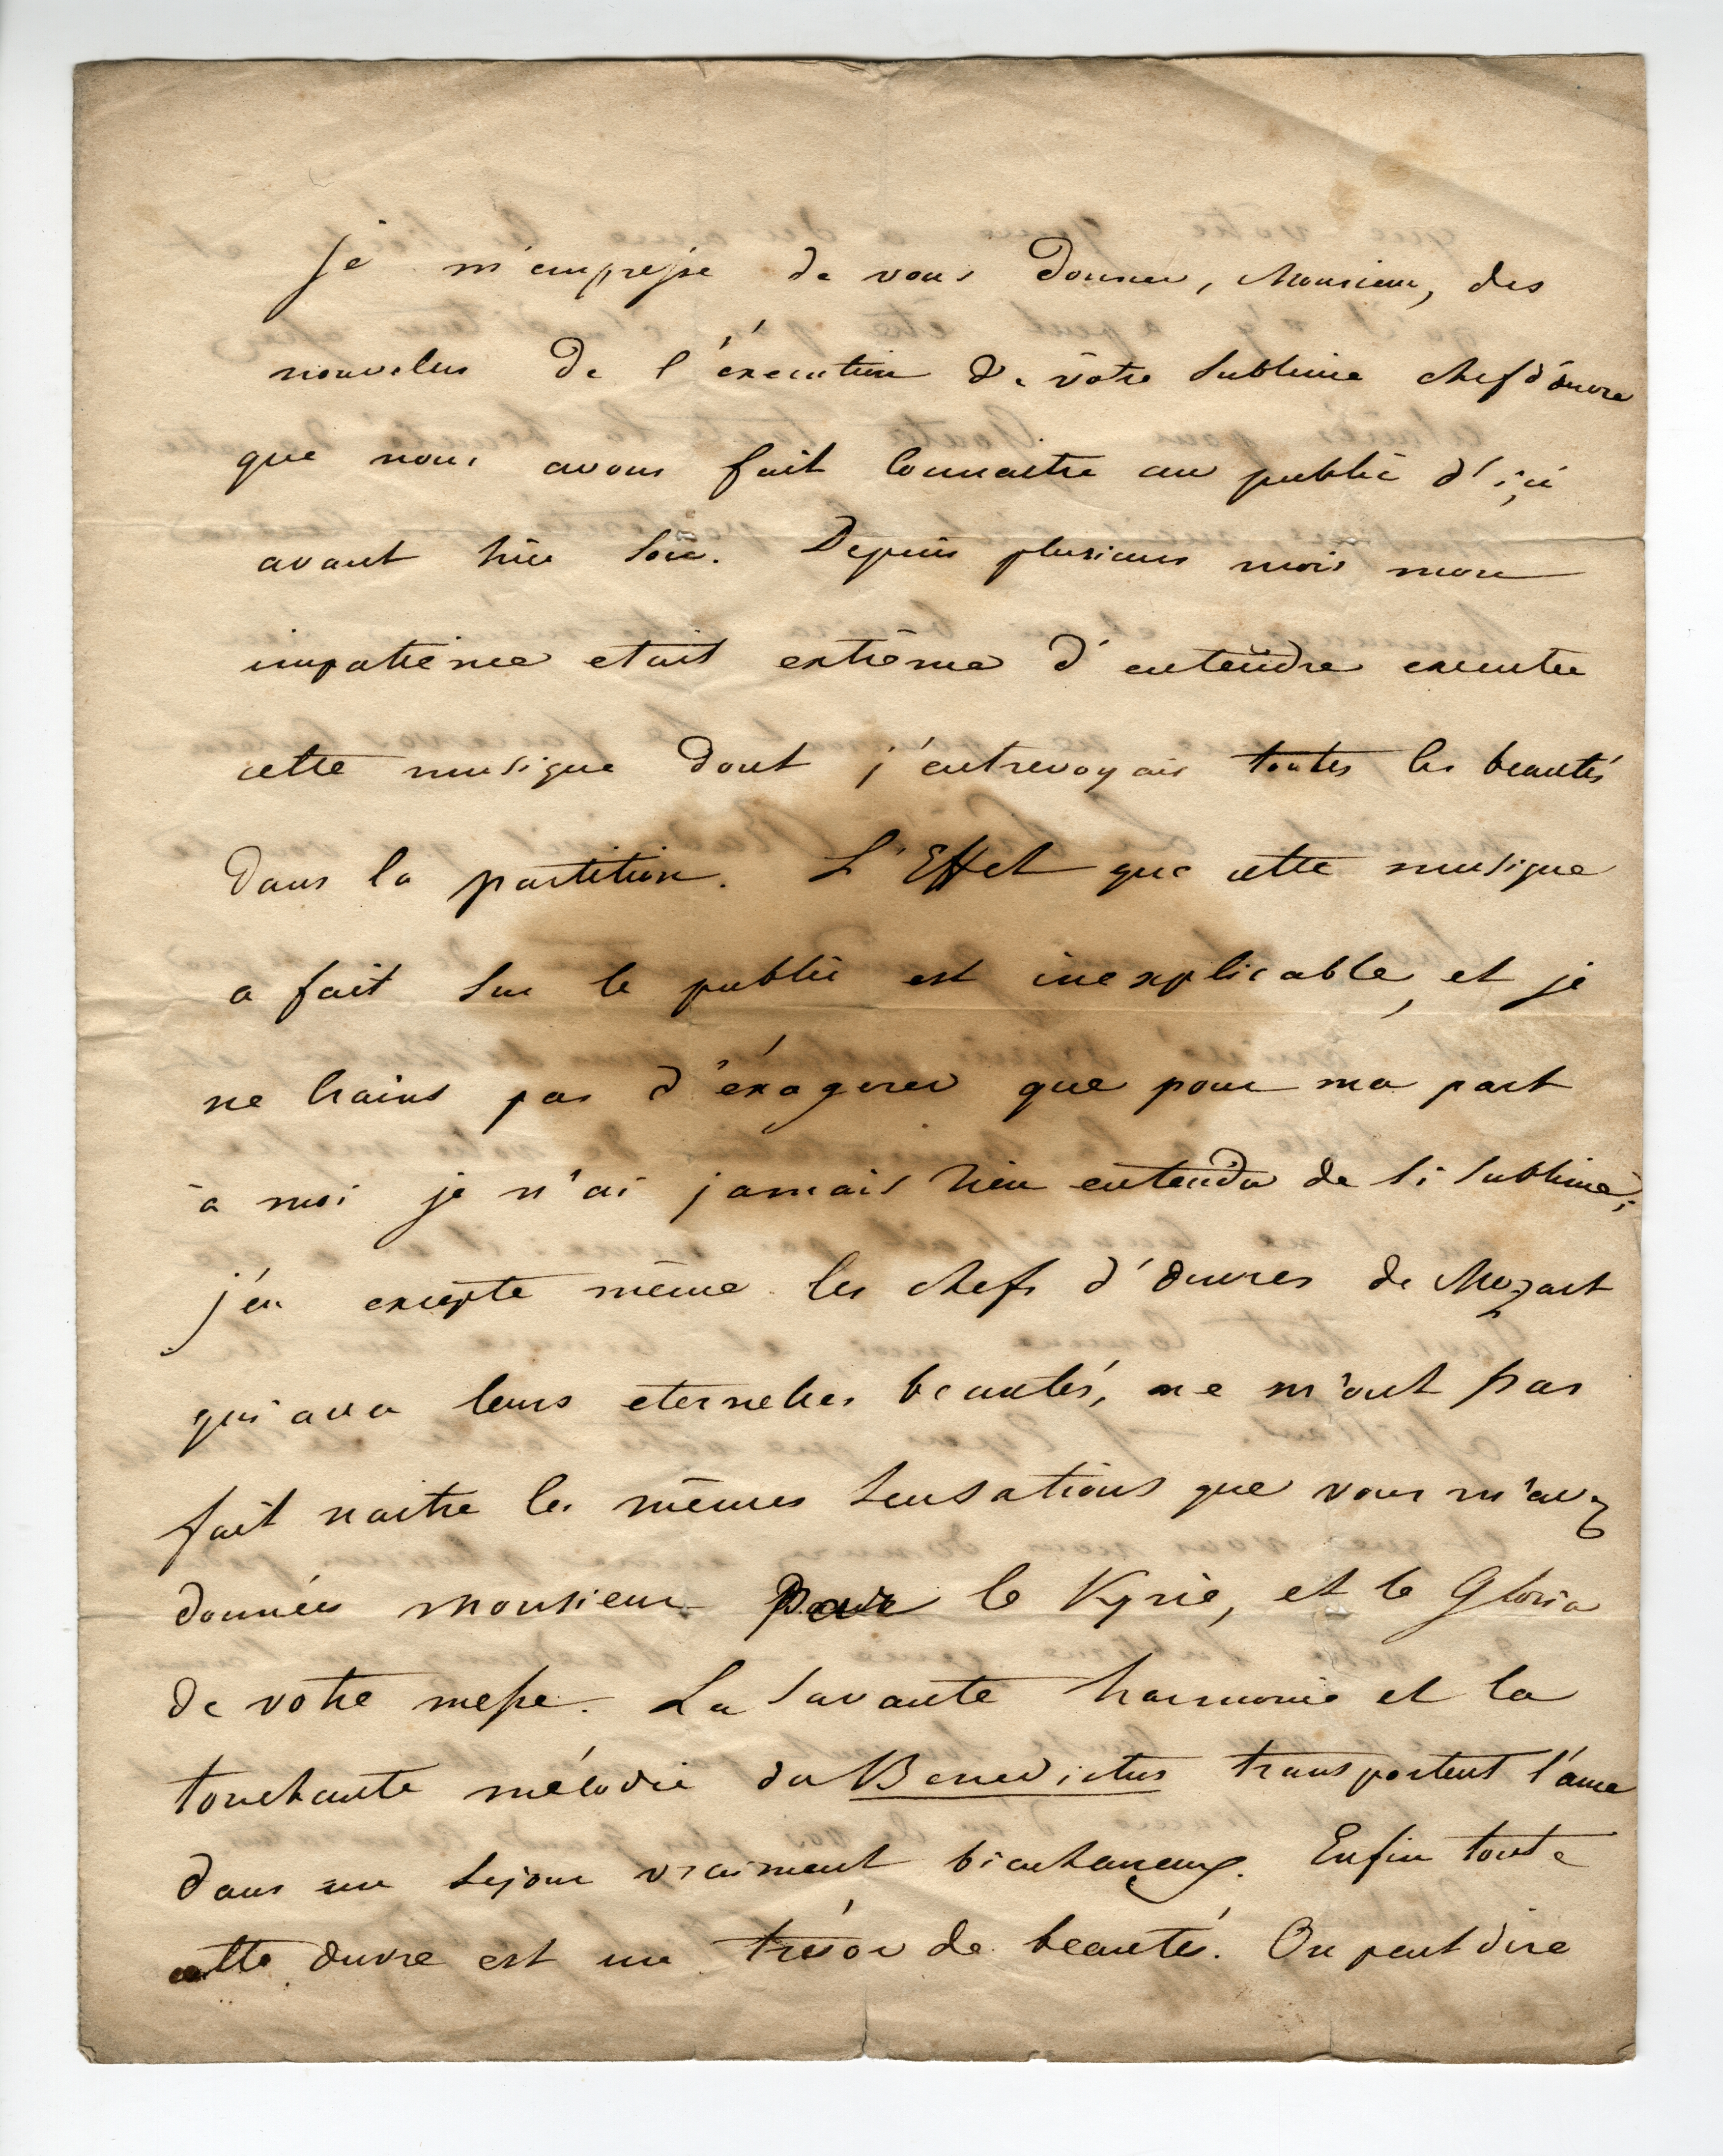 Je m'empresse de vous donner, Monsieur, des
nouvelles de l'éxecution de vôtre sublime chef d'ôuvre
que nous avons fait connaitre au public d'içi
avant hier soir. Depuis plusieurs mois mon
impatience etait extrême d'entendre executer
cette musique dont j'entrevoyais toutes les beautés
dans la partition. L'Effet que cette musique
a fait sur le public est inexplicable, et je
ne crains pas d'éxagerer que pour ma part
à moi je n'ai jamais rien entendu de si sublime;
j'en excepte même les chefs d'ouvres de Mozart
qui avec leurs eternelles beautés, ne m'ont pas
fait naitre les mêmes sensations que vous m'avez
données monsieur par le Kyrie, et le Gloria
de votre messe. La savante harmonie et la
touchante mélodie du Benedictus transportent l'ame
dans un sejour vraiment bienheureux. Enfin toute
cette ouvre est un trésor de beautés. On peut dire